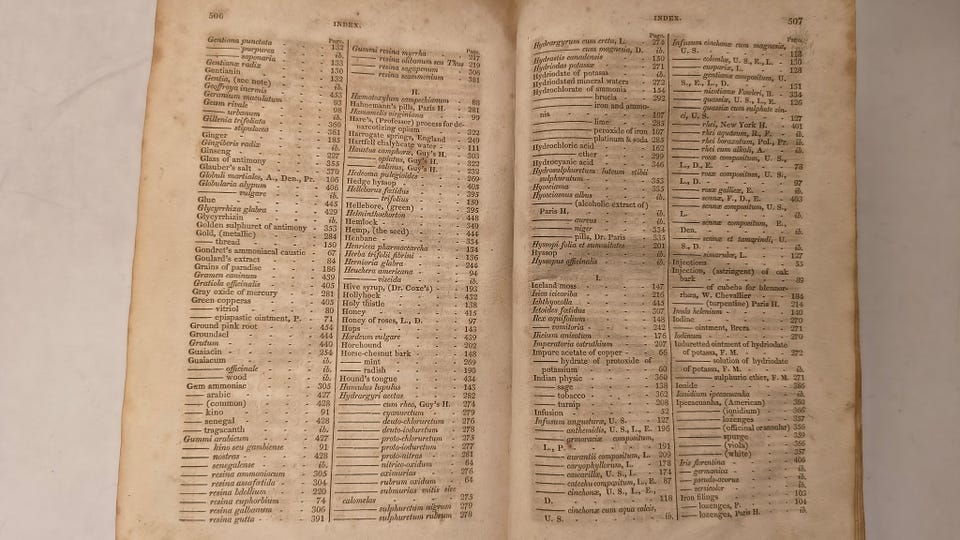 506
INDEX.
Page.
Gentiana punctata 132
—— purpurea ib.
—— saponaria ib.
Gentianæ radix 133
Gentianin 130
Gentia, (see note) 132
Geoffroya inermis ib.
Geranium maculatum 453
Geum rivale 93
—— urbanum 98
Gillenia trifoliata ib.
—— stipulacea 360
Ginger 361
Gingiberis radix 185
Ginseng ib.
Glass of antimony 227
Glauber's salt 355
Globuli martiales, A., Den., Pr. 370
Globularia alypum 106
—— vulgare 406
Glue ib.
Glycyrrhiza glabra 445
Glycyrrhizin 429
Golden sulphuret of antimony ib.
Gold, (metallic) 353
—— thread 284
Gondret's ammoniacal caustic 150
Goulard's extract 67
Grains of paradise 84
Gramen caninum 186
Gratiola officinalis 439
Gray oxide of mercury 405
Green copperas 281
—— vitriol 405
—— epispastic ointment, P. 80
Ground pink root 71
Groundsel 454
Grutum 444
Guaiacin 440
Guaiacum 254
—— officinale ib.
—— wood ib.
Gum ammoniac 305
—— arabic 427
—— (common) 428
—— kino 91
—— senegal 428
—— tragacanth ib.
Gummi arabicum 427
—— kino seu gambiense 91
—— nostras 428
—— senegalense ib.
—— resina ammoniacum 305
—— resina assafœtida 304
—— resina bdellium 220
—— resina euphorbium 74
—— resina galbanum 306
—— resina gutta 391
Page.
Gummi resina myrrha 217
—— resina olibanum seu Thus 219
—— resina sagapenum 306
—— resina scammonium 381
H.
Hæmatoxylum campechianum 88
Hahnemann's pills, Paris H. 281
Hamamelis virginiana 99
Hare's, (Professor) process for denarcotizing
opium 322
Harrogate springs, England 249
Hartfell chalybeate water 111
Haustus camphoræ, Guy's H. 303
—— opiatus, Guy's H. 322
—— salinus, Guy's H. 232
Hedeoma pulegioides 269
Hedge hyssop 405
Helleborus fœtidus 395
—— trifolius 150
Hellebore, (green) 395
Helminthochorton 448
Hemlock 349
Hemp, (the seed) 444
Henbane 334
Henricea pharmacearcha 134
Herba trifolii fibrini 136
Herniaria glabra 244
Heuchera americana 94
—— viscida ib.
Hive syrup, (Dr. Coxe's) 193
Hollyhock 432
Holy thistle 138
Honey 415
Honey of roses, L., D. 97
Hops 143
Hordeum vulgare 439
Horehound 202
Horse-chesnut bark 148
—— mint 269
—— radish 190
Hound's tongue 434
Humulus lupulus 143
Hydrargyri acetas 282
—— cum rheo, Guy's H. 274
—— cyanuretum 279
—— deuto-chloruretum 276
—— deuto-ioduretum 278
—— proto-chloruretum 275
—— proto-ioduretum 277
—— proto-nitras 281
—— nitrico-oxidum 64
—— oximurias 276
—— rubrum oxidum 64
—— submurias mitis sive
calomelas 275
—— sulphuretum nigrum 279
—— sulphuretum rubrum 278
INDEX.
507
Page.
Hydrargyrum cum creta, L. 274
—— cum magnesia, D. ib.
Hydrastis canadensis 150
Hydriodas potassæ 271
Hydriodate of potassa ib.
Hydriodated mineral waters 272
Hydrochlorate of ammonia 154
—— brucia 292
—— iron and ammonia
107
—— lime 285
—— peroxide of iron 107
—— platinum & soda 285
Hydrochloric acid 162
—— ether 299
Hydrocyanic acid 346
Hydrosulphuretum luteum stibii
sulphuratum 353
Hyosciama 335
Hyosciamus albus ib.
—— (alcoholic extract of)
Paris H. ib.
—— aureus ib.
—— niger 334
—— pills, Dr. Paris 335
Hyssopi folia et summitates 201
Hyssop ib.
Hyssopus officinalis ib.
I.
Iceland moss 147
Icica icicariba 216
Ichthyocolla 415
Ictodes fœtidus 307
Ilex aquifolium 148
—— vomitoria 242
Illicium anisatum 176
Imperatoria ostruthium 207
Impure acetate of copper 66
—— hydrate of protoxide of
potassium 60
Indian physic 360
—— sage 138
—— tobacco 362
—— turnip 208
Infusion 52
Infusum angusturæ, U. S. 127
—— anthemidis, U. S., L., E. 195
—— armoraciæ compositum,
L., P. 191
—— aurantii compositum, L. 209
—— caryophyllorum, L. 178
—— cascarillæ, U. S., L. 174
—— catechu compositum, L., E. 87
—— cinchonæ, U. S., L., E.,
D. 118
—— cinchonæ cum aqua calcis,
U. S. ib.
Page.
Infusum cinchonæ cum magnesia,
U. S. 118
—— colombæ, U. S., E., L. 130
—— cuspariæ, L. 128
—— gentianæ compositum, U.
S., E., L., D. 131
—— nicotianæ Fowleri, B. 334
—— quassiæ, U. S., L., E. 126
—— quassiæ cum sulphate zinci,
U. S. 127
—— rhei, New York H. 401
—— rhei aquosum, R., F. ib.
—— rhei boraxatum, Pol., Pr. ib.
—— rhei cum alkali, A. ib.
—— rosæ compositum, U. S.,
L., D., E. 78
—— rosæ compositum, U. S.,
L., D. 97
—— rosæ gallicæ, E. ib.
—— sennæ, F., D., E. 403
—— sennæ compositum, U. S.,
L. ib.
—— sennæ compositum, E.,
Den. ib.
—— sennæ et tamarindi, U.
S., D. ib.
—— simarubæ, L. 127
Injections 55
Injection, (astringent) of oak
bark 89
—— of cubebs for blennorrhœa,
W. Chevallier 184
—— (turpentine) Paris H. 214
Inula helenium 140
Iodine 270
—— ointment, Brera 271
Iodinum 270
Ioduretted ointment of hydriodate
of potassa, F. M. 272
—— solution of hydriodate
of potassa, F. M. ib.
—— sulphuric ether, F. M. 271
Ionide 386
Ionidium ipecacuanha ib.
Ipecacuanha, (American) 360
—— (ionidium) 366
—— lozenges 357
—— (officinal or annular) 356
—— spurge 359
—— (viola) 366
—— (white) 357
Iris florentina 406
—— germanica ib.
—— pseudo-acorus ib.
—— versicolor ib.
Iron filings 103
—— lozenges, P. 104
—— lozenges, Paris H. ib.